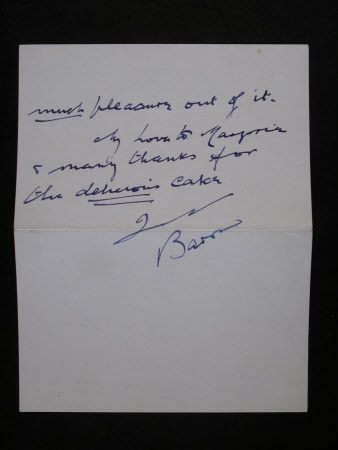 much pleasure out of it.
My love to Marjorie
& many thanks for
the delicious cake